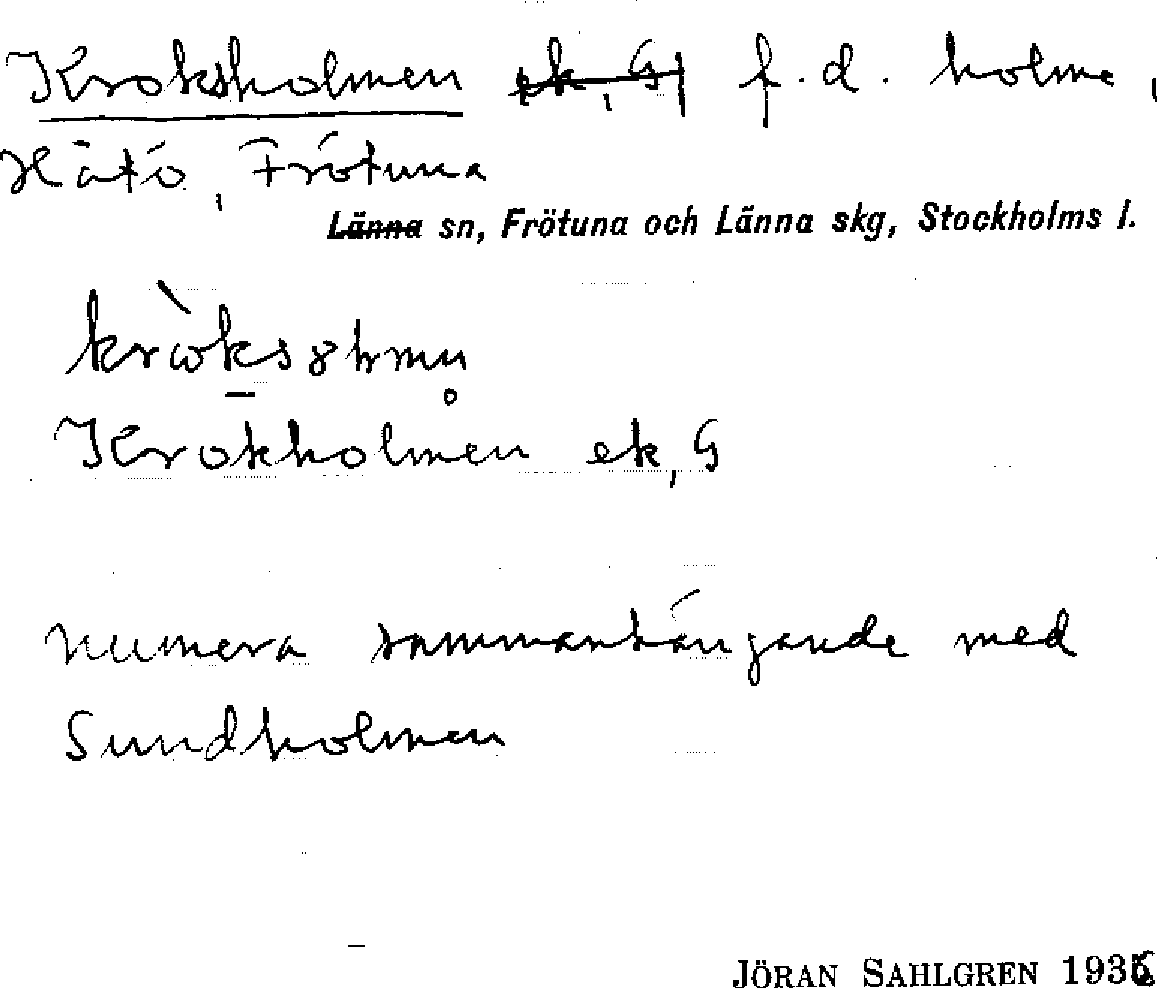 Kroksholmen ek, G f.d. holme,
Hätö, Frötuna
Länna sn, Frötuna och Länna skg, Stockholms l.
Krokholmen ek, G
numera sammanhängande med
Sundholmen
JÖRAN SAHLGREN 1936